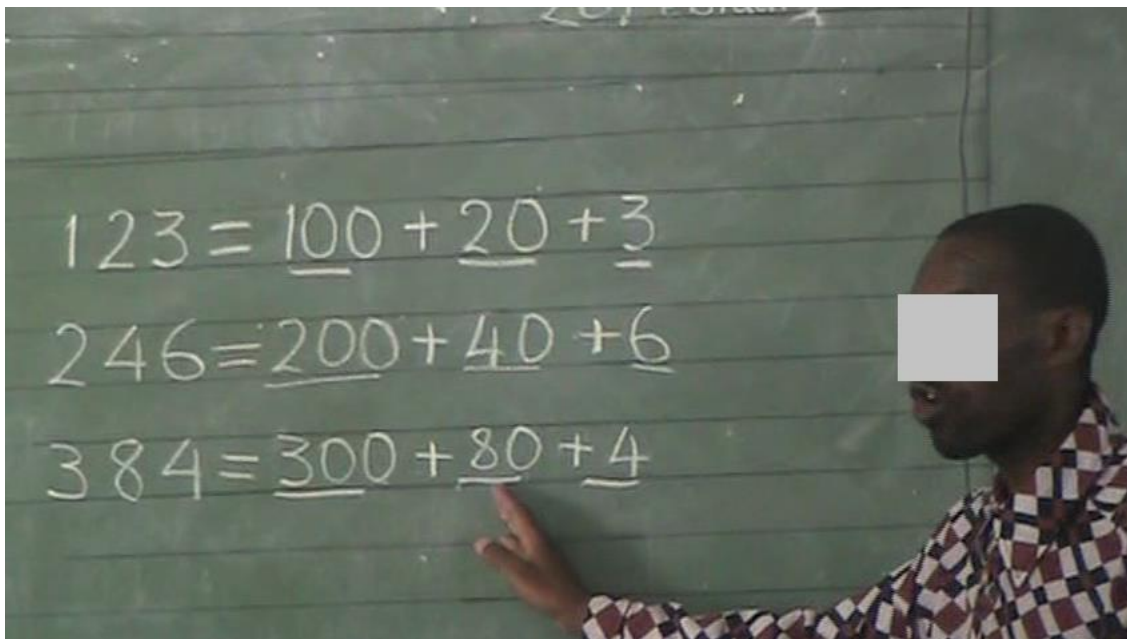 123 = 100 + 20 + 3
246 = 200 + 40 + 6
384 = 300 + 80 + 4